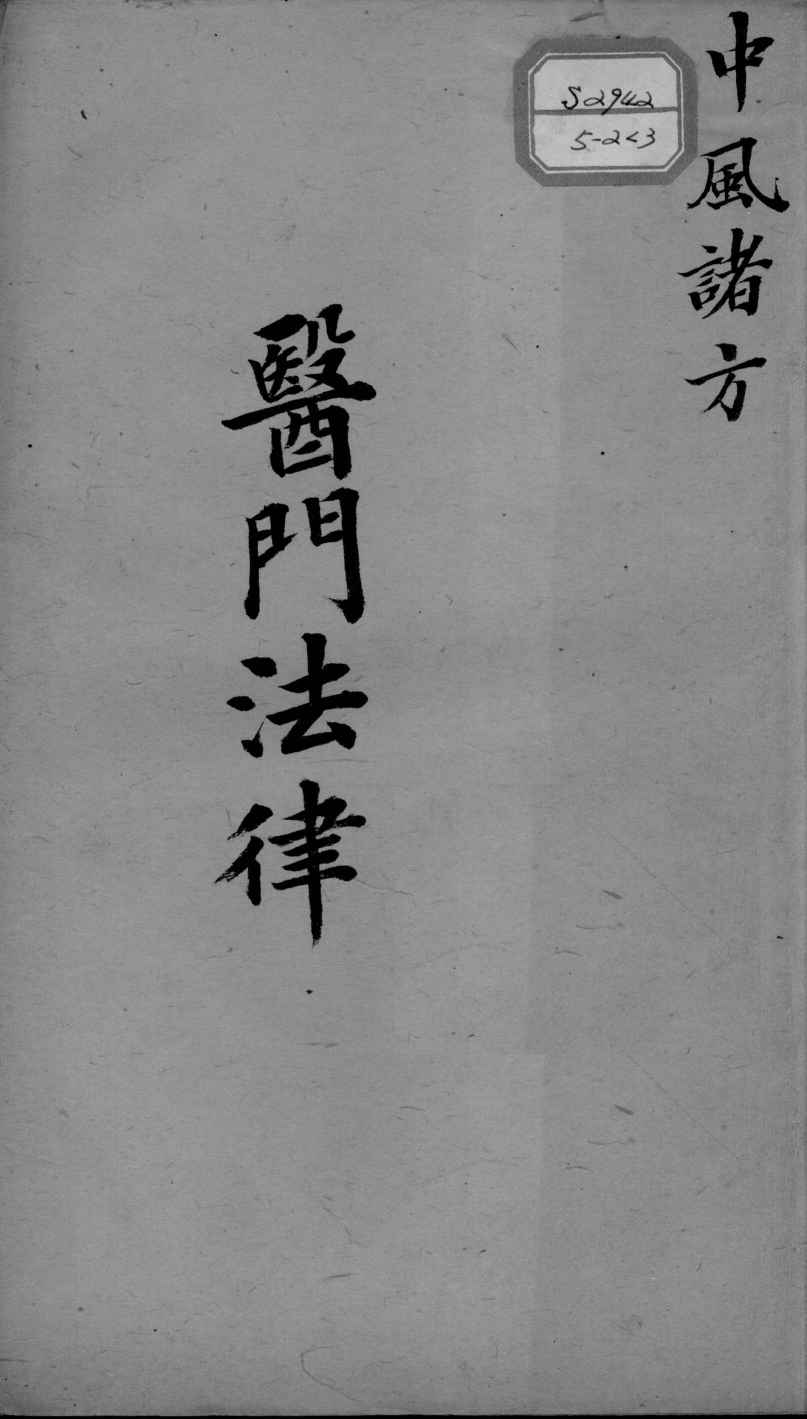 中風諸方
S2942
5-2<3
醫門法律